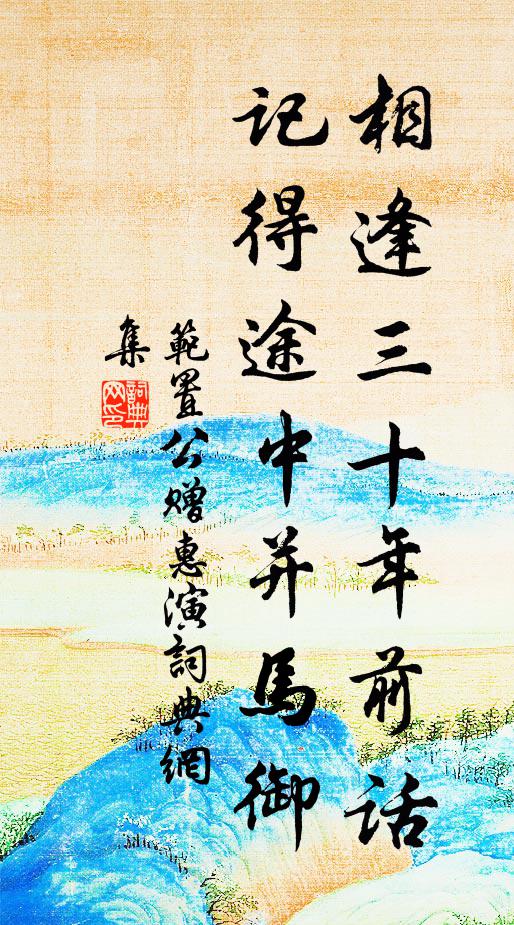 相逢三十年前话
记得途中并馬御
範置公赠惠演詞典網
集
詞典
网印